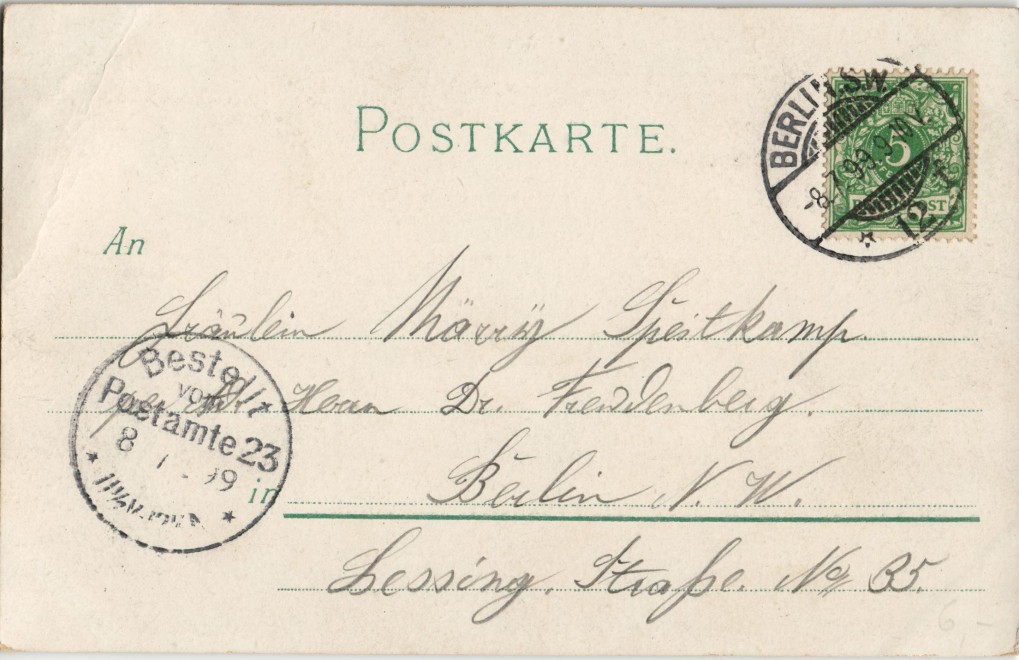 POSTKARTE.
BERLIN.S.W.
8.7.99.9-10V.
* 12 f
5
An
Fräulein Märrÿ Speitkamp.
Bestellt
vom
Postamte 23
8 7 99
Herrn Dr. Freudenberg.
in Berlin N. W.
Lessing. Straße. No 35.
6,-